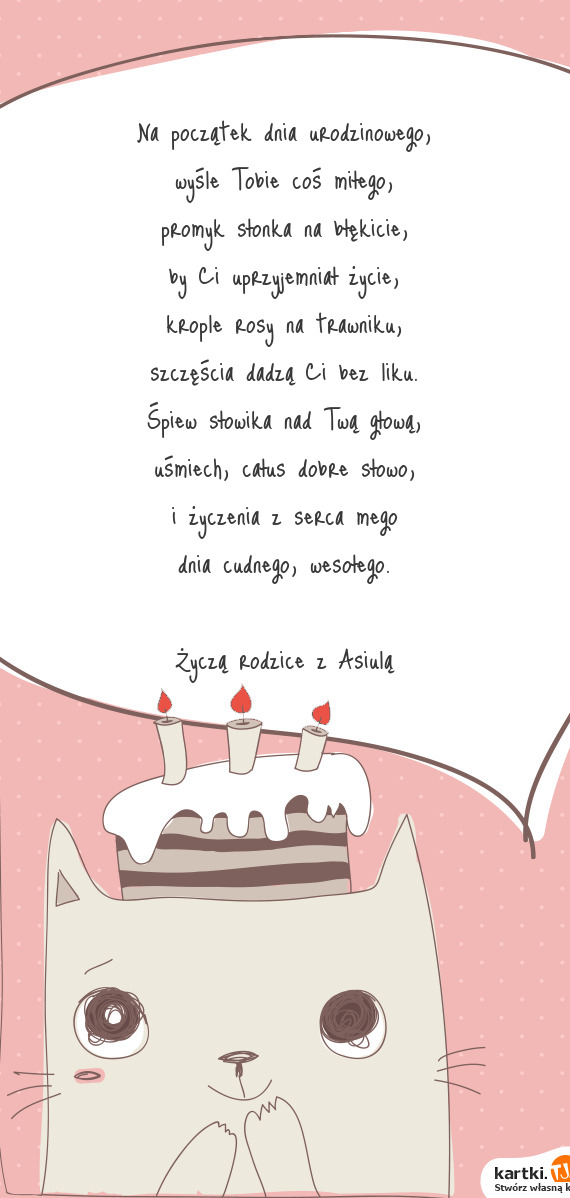 Na początek dnia urodzinowego,
wyśle Tobie coś miłego,
promyk słonka na błękicie,
by Ci uprzyjemniał życie,
krople rosy na trawniku,
szczęścia dadzą Ci bez liku.
Śpiew słowika nad Twą głową,
uśmiech, całus dobre słowo,
i życzenia z serca mego
dnia cudnego, wesołego.
Życzą rodzice z Asiulą
kartki.TJ
Stwórz własną k